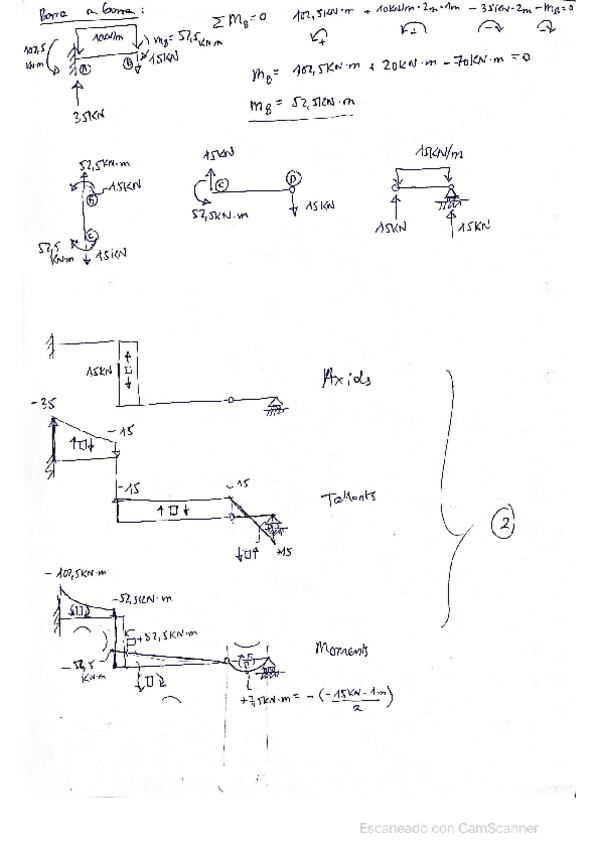 Barra a barra:
Σ M_B = 0 102,5KN·m + 10KN/m·2m·1m - 35KN·2m - M_B = 0
10KN/m
102,5 KN·m
M_B = 52,5 KN·m
A
B
15KN
35KN
M_B = 102,5KN·m + 20KN·m - 70KN·m = 0
M_B = 52,5KN·m
52,5KN·m
15KN
B
C
52,5 KN·m
15KN
15KN
C
D
52,5KN·m
15KN
15KN/m
15KN
15KN
15KN
Axids
-35
-15
-15
-15
+15
Tallants
2
-102,5KN·m
-52,5KN·m
+52,5KN·m
-52,5 KN·m
Moments
+7,5KN·m = -(-15KN·1m)/2
Escaneado con CamScanner